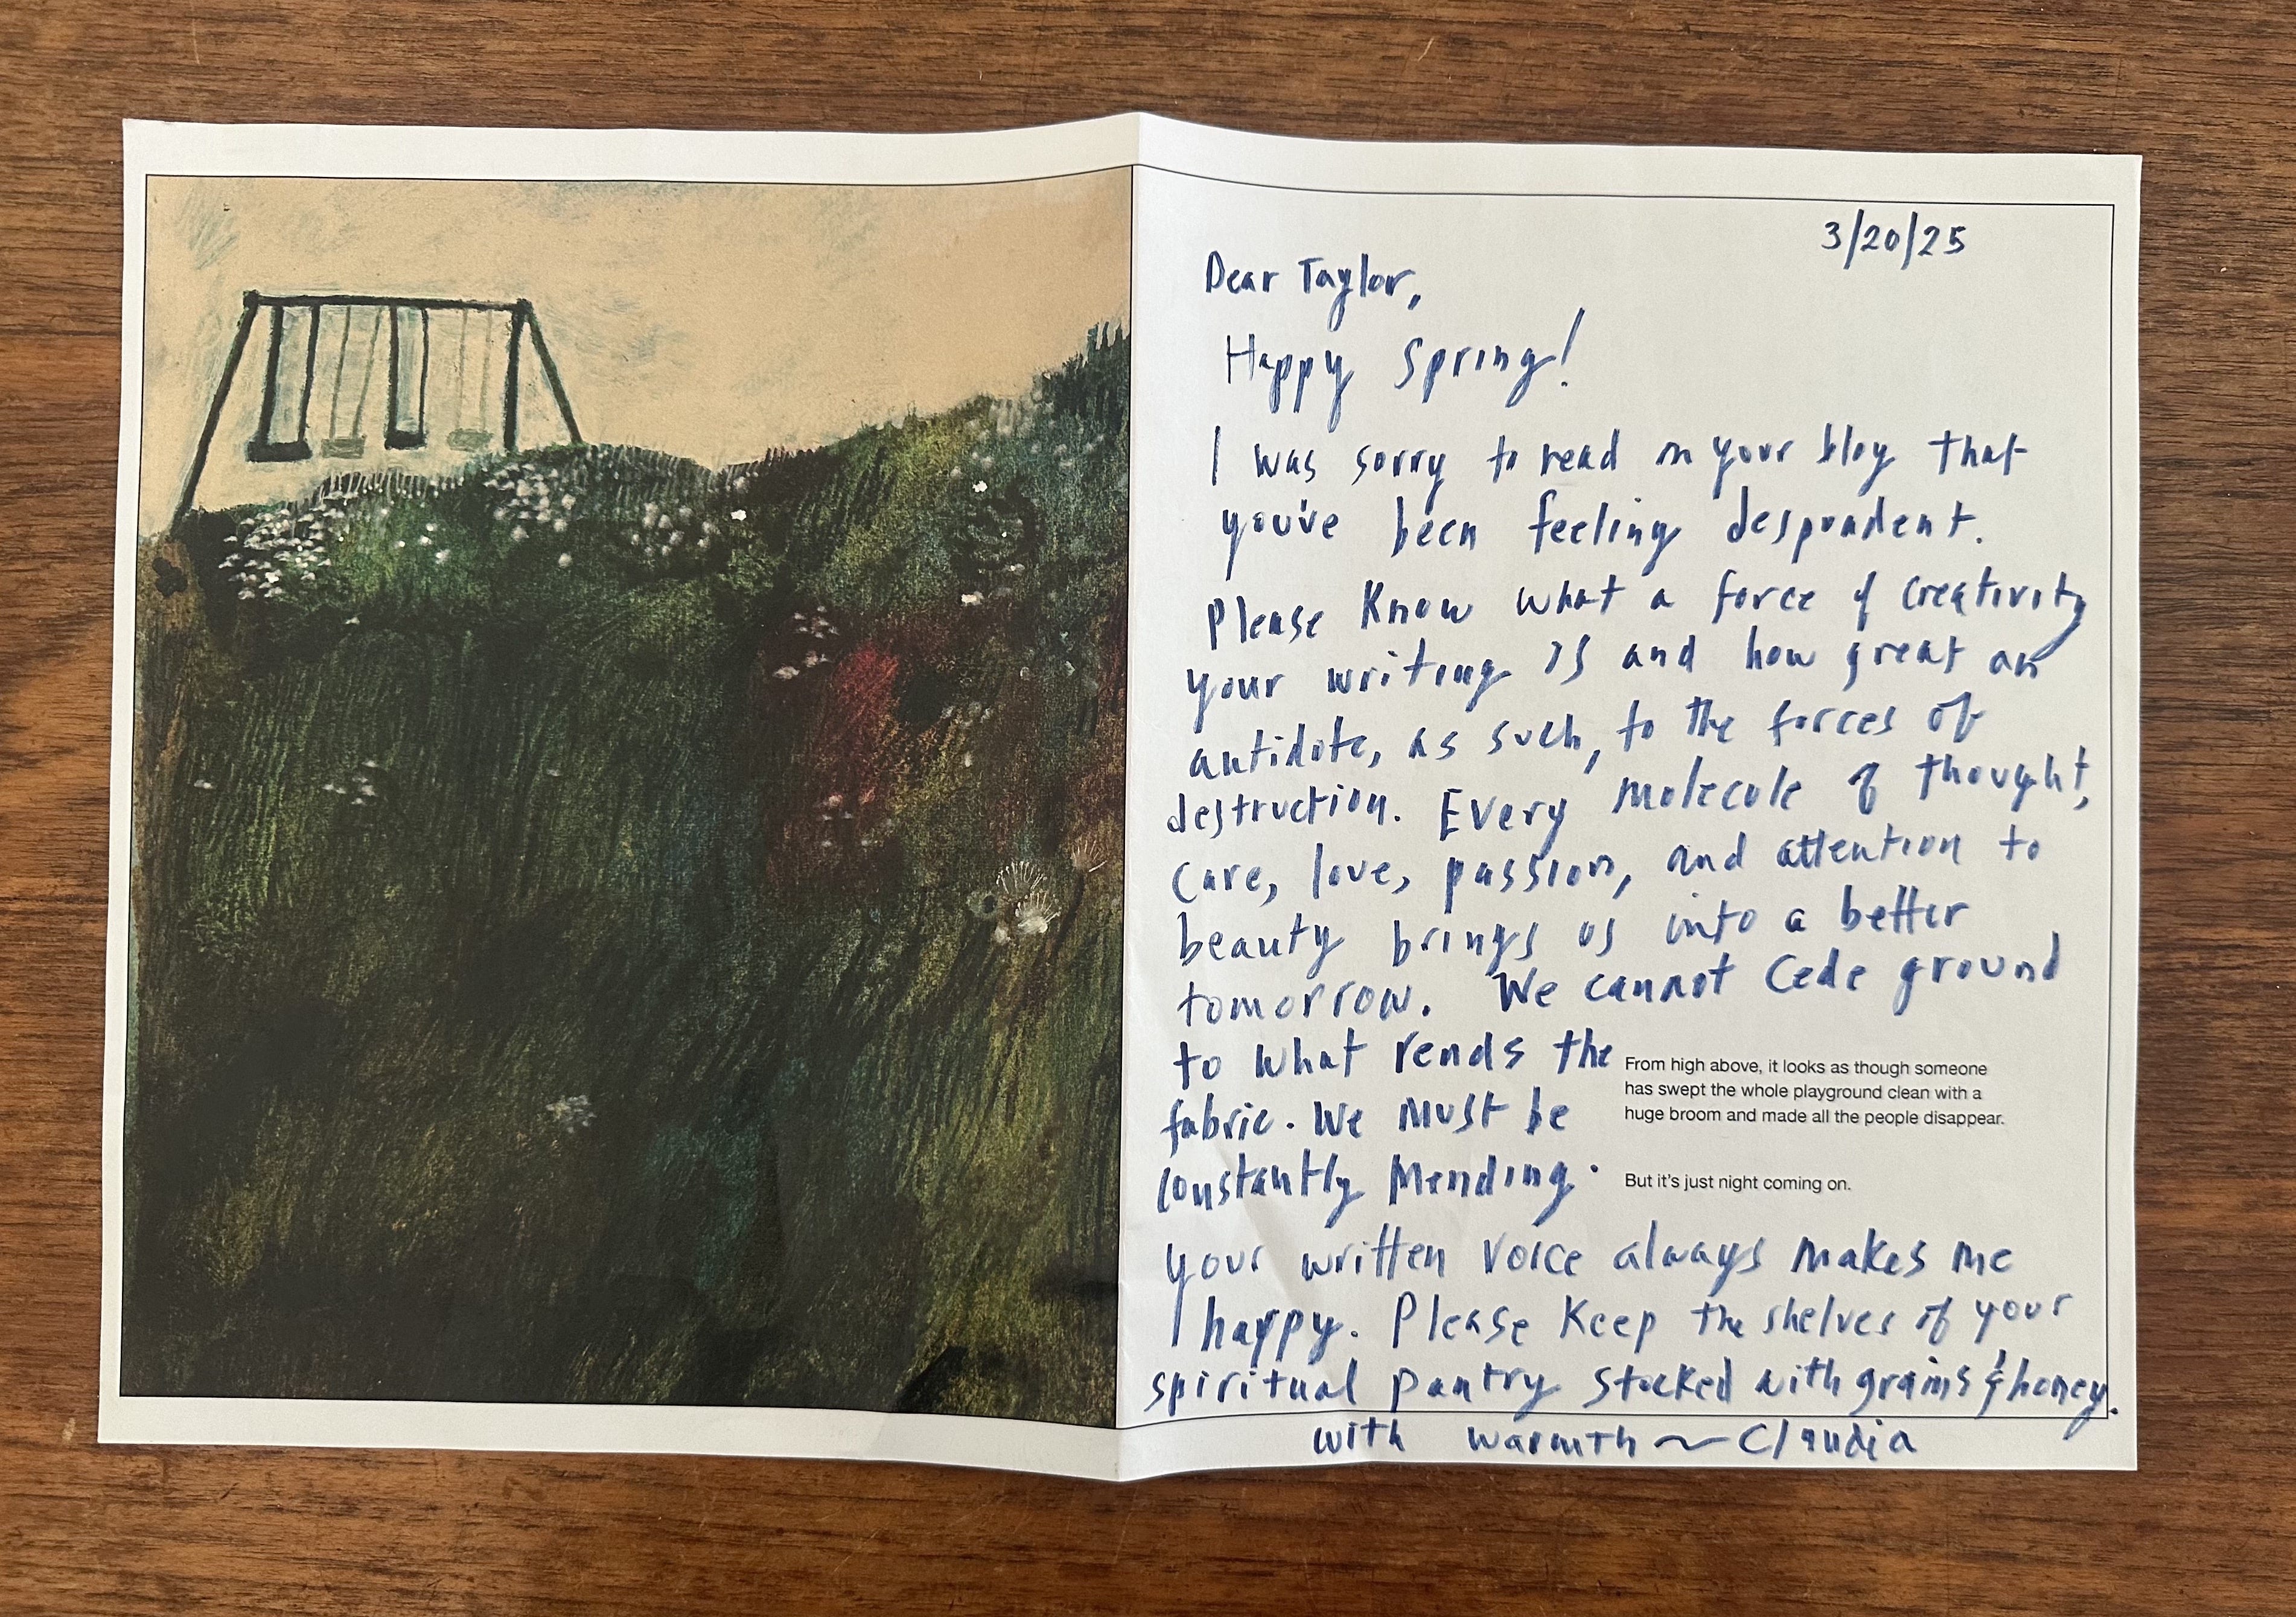 3/20/25
Dear Taylor,
Happy Spring!
I was sorry to read in your blog that
you've been feeling despondent.
Please Know what a force of creativity
your writing is and how great an
antidote, as such, to the forces of
destruction. Every molecule of thought,
care, love, passion, and attention to
beauty brings us into a better
tomorrow. We cannot cede ground
to what rends the
fabric. We must be
constantly mending.
From high above, it looks as though someone
has swept the whole playground clean with a
huge broom and made all the people disappear.
But it's just night coming on.
your written voice always makes me
happy. Please Keep the shelves of your
spiritual pantry stocked with grains & honey.
with warmth ~ Claudia